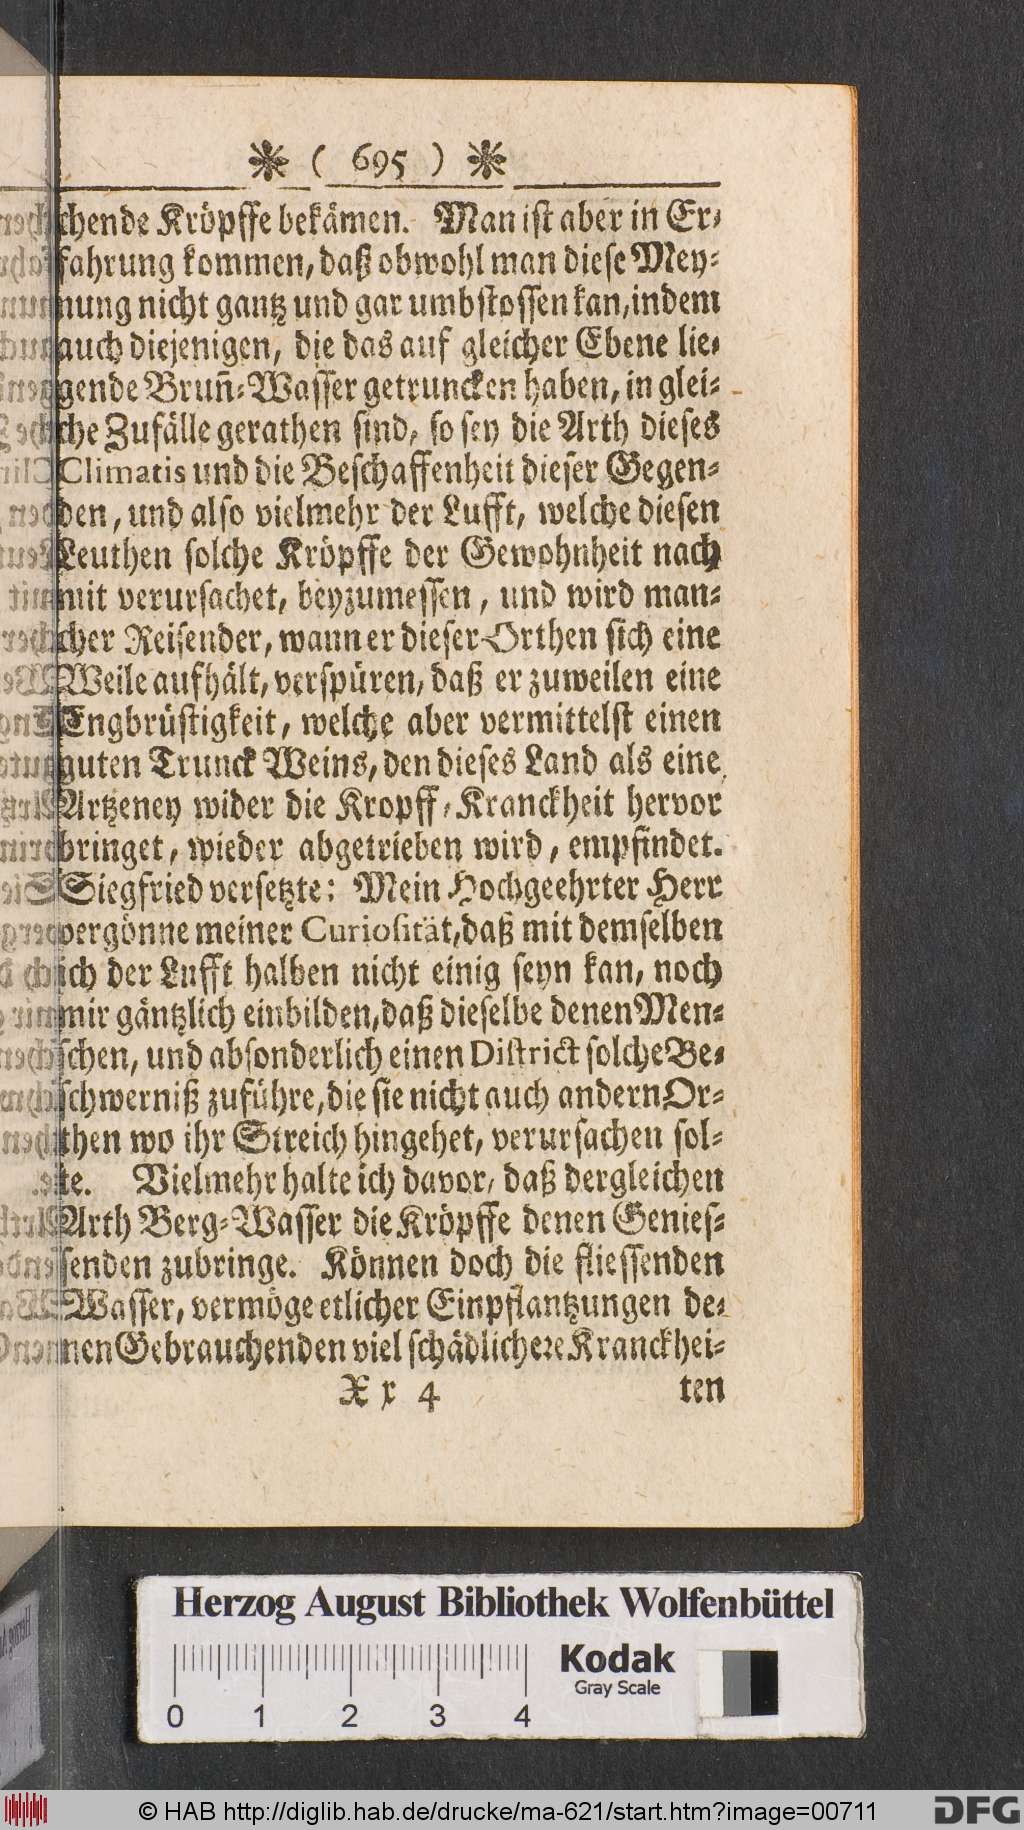 ❋ ( 695 ) ❋
chende Kröpffe bekämen. Man ist aber in Er-
fahrung kommen, daß obwohl man diese Mey-
nung nicht gantz und gar umbstossen kan, indem
auch diejenigen, die das auf gleicher Ebene lie-
gende Bruñ-Wasser getruncken haben, in glei-
che Zufälle gerathen sind, so sey die Arth dieses
Climatis und die Beschaffenheit dieser Gegen-
den, und also vielmehr der Lufft, welche diesen
Leuthen solche Kröpffe der Gewohnheit nach
mit verursachet, beyzumessen, und wird man-
cher Reisender, wann er dieser Orthen sich eine
Weile aufhält, verspüren, daß er zuweilen eine
Engbrüstigkeit, welche aber vermittelst einen
guten Trunck Weins, den dieses Land als eine
Artzeney wider die Kropff-Kranckheit hervor
bringet, wieder abgetrieben wird, empfindet.
Siegfried versetzte: Mein Hochgeehrter Herr
vergönne meiner Curiosität, daß mit demselben
ich der Lufft halben nicht einig seyn kan, noch
mir gäntzlich einbilden, daß dieselbe denen Men-
schen, und absonderlich einen District solche Be-
schwerniß zuführe, die sie nicht auch andern Or-
then wo ihr Streich hingehet, verursachen sol-
te. Vielmehr halte ich davor, daß dergleichen
Arth Berg-Wasser die Kröpffe denen Genies-
senden zubringe. Können doch die fliessenden
Wasser, vermöge etlicher Einpflantzungen de-
nen Gebrauchenden viel schädlichere Kranckhei-
X x 4 ten
Herzog August Bibliothek Wolfenbüttel
Kodak
Gray Scale
0 1 2 3 4
© HAB http://diglib.hab.de/drucke/ma-621/start.htm?image=00711
DFG